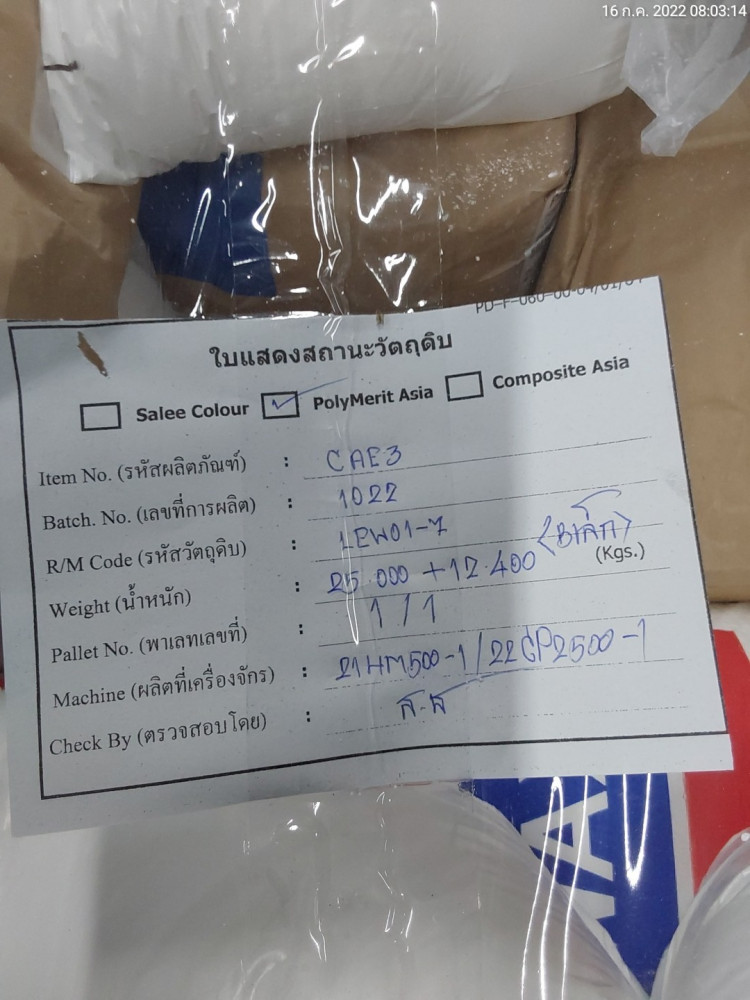 16 ก.ค. 2022 08:03:14
ใบแสดงสถานะวัตถุดิบ
Salee Colour PolyMerit Asia Composite Asia
Item No. (รหัสผลิตภัณฑ์) : CAE3
Batch. No. (เลขที่การผลิต) : 1022
R/M Code (รหัสวัตถุดิบ) : LEW01-7
Weight (น้ำหนัก) : 25.000 + 12.400 (Kgs.)
Pallet No. (พาเลทเลขที่) : 1/1
Machine (ผลิตที่เครื่องจักร) : 21HM500-1/22CP2500-1
Check By (ตรวจสอบโดย) : ส.ส